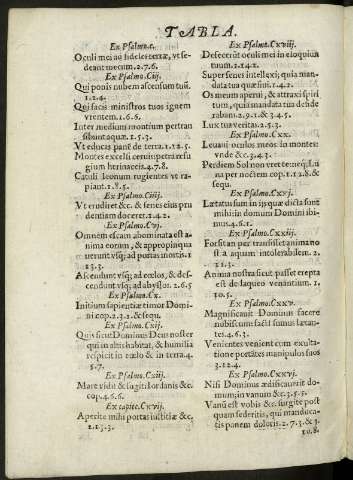 TABLA.
Ex Psalmo.c.
Oculi mei ad fideles terræ, vt se-
deant mecum. 2.7.6.
Ex Psalmo.Ciij.
Qui ponis nubem ascensum tuũ.
1.2.4.
Qui facis ministros tuos ignem
vrentem. 1.6.6.
Inter medium montium pertran
sibunt aquæ. 1.5.3.
Vt educas panẽ de terra. 1.12.5.
Montes excelsi ceruis petra refu
gium herinaceis. 4.7.8.
Catuli leonum rugientes vt ra-
piant. 1.8.5.
Ex Psalmo.Ciiij.
Vt erudiret &c. & senes eius pru
dentiam doceret. 1.4.2.
Ex Psalmo.Cvj.
Omnem escam abominata est a-
nima eorum, & appropinqua
uerunt vsq; ad portas mortis. 1
13.3.
Ascendunt vsq; ad cœlos, & des-
cendunt vsq; ad abyssos. 2.6.5
Ex Psalmo.Cx.
Initium sapientiæ timor Domi-
ni cop. 2.3.1. & sequ.
Ex Psalmo.Cxij.
Quis sicut Dominus Deus noster
qui in altis habitat, & humilia
respicit in cœlo & in terra. 4.
5.7.
Ex Psalmo.Cxiij.
Mare vidit & fugit Iordanis &c.
cop. 4.6.6.
Ex capite.Cxvij.
Aperite mihi portas iustitiæ &c.
2.13.3.
Ex Psalmo.Cxviij.
Defecerũt oculi mei in eloquium
tuum. 1.14.2.
Super senes intellexi; quia man-
data tua quæsiui. 1.4.2.
Os meum aperui, & attraxi spiri
tum, quia mandata tua deside
rabam. 2.9.1. & 3.4.5.
Lux tua veritas. 2.5.3.
Ex Psalmo.Cxx.
Leuaui oculos meos in montes:
vnde &c. 3.4.3.
Perdiem Sol non vret te: neq; Lu
na per noctem cop. 1.12.8. &
sequ.
Ex Psalmo.Cxxj.
Lætatus sum in ijs quæ dicta sunt
mihi: in domum Domini ibi-
mus. 4.6.1.
Ex Psalmo.Cxxiij.
Forsitan pertransisset anima no
stra aquam intolerabilem. 2.
11.3.
Anima nostra sicut passer erepta
est de laqueo venantium. 1.
10.5.
Ex Psalmo.Cxxv.
Magnificauit Dominus facere
nobiscum: facti sumus lætan-
tes. 4.6.3.
Venientes venient cum exulta-
tione portãtes manipulos suos
3.12.4.
Ex Psalmo.Cxxvj.
Nisi Dominus ædificauerit do-
mum; in vanum &c. 3.5.
Vanũ est vobis &c. surgite post
quam sederitis, qui manduca-
tis panem doloris. 2.7.3. & 3.
10.8.